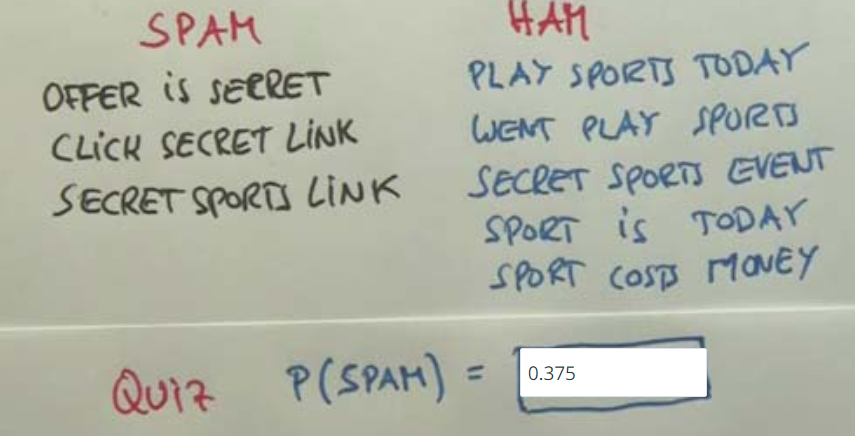 SPAM
OFFER iS SECRET
CLiCK SECRET LiNK
SECRET SPORTS LiNK
HAM
PLAY SPORTS TODAY
WENT PLAY SPORTS
SECRET SPORTS EVENT
SPORT iS TODAY
SPORT COSTS MONEY
QUiZ P(SPAM) = 0.375